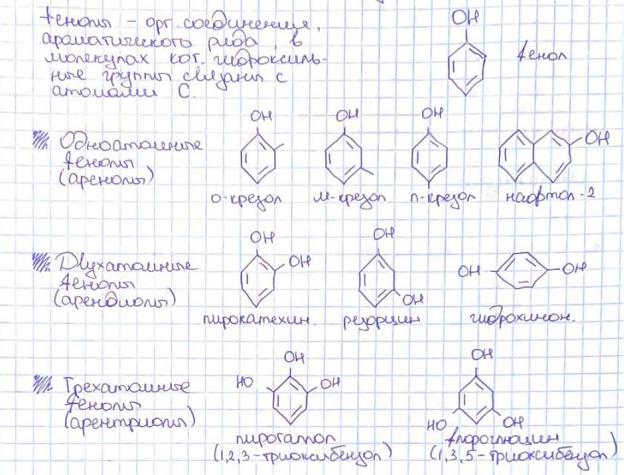 Фенолы – орг. соединения,
ароматического ряда, в
молекулах кот. гидроксиль-
ные группы связаны с
атомами С.
OH
фенол
Одноатомные
фенолы
(аренолы)
OH
о-крезол
OH
м-крезол
OH
п-крезол
OH
нафтол-2
Двухатомные
фенолы
(арендиолы)
OH
OH
пирокатехин.
OH
OH
резорцин
OH
OH
гидрохинон.
Трехатомные
фенолы
(арентриолы)
OH
HO
OH
пирогалол
(1,2,3-триоксибензол)
OH
HO
OH
флороглюцин
(1,3,5-триоксибензол)